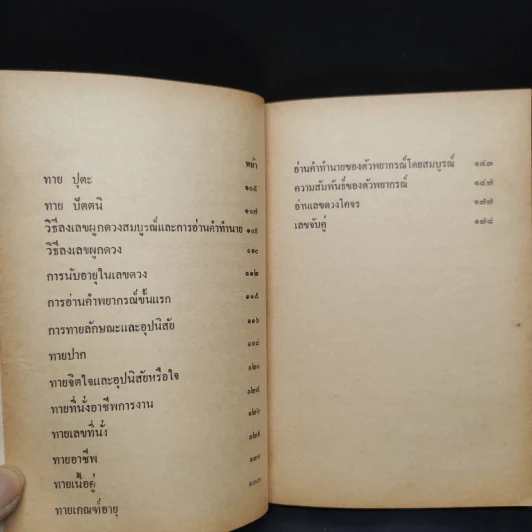 หน้า
ทาย ปุตะ ๑๐๕
ทาย ปัตตนิ ๑๐๗
วิธีลงเลขผูกดวงสมบูรณ์และการอ่านคำทำนาย ๑๐๙
วิธีลงเลขผูกดวง ๑๑๐
การนับอายุในเลขดวง ๑๑๒
การอ่านคำพยากรณ์ขั้นแรก ๑๑๕
การทายลักษณะและอุปนิสัย ๑๑๖
ทายปาก ๑๑๘
ทายจิตใจและอุปนิสัยหรือใจ ๑๒๐
ทายที่นั่งอาชีพการงาน
ทายเลขที่นั่ง ๑๒๖
ทายอาชีพ
ทายเนื้อคู่ ๑๓๐
ทายเกณฑ์อายุ
อ่านคำทำนายของตัวพยากรณ์โดยสมบูรณ์ ๑๔๓
ความสัมพันธ์ของตัวพยากรณ์
อ่านเลขดวงโคจร ๑๗๗
เลขจับคู่ ๑๗๘